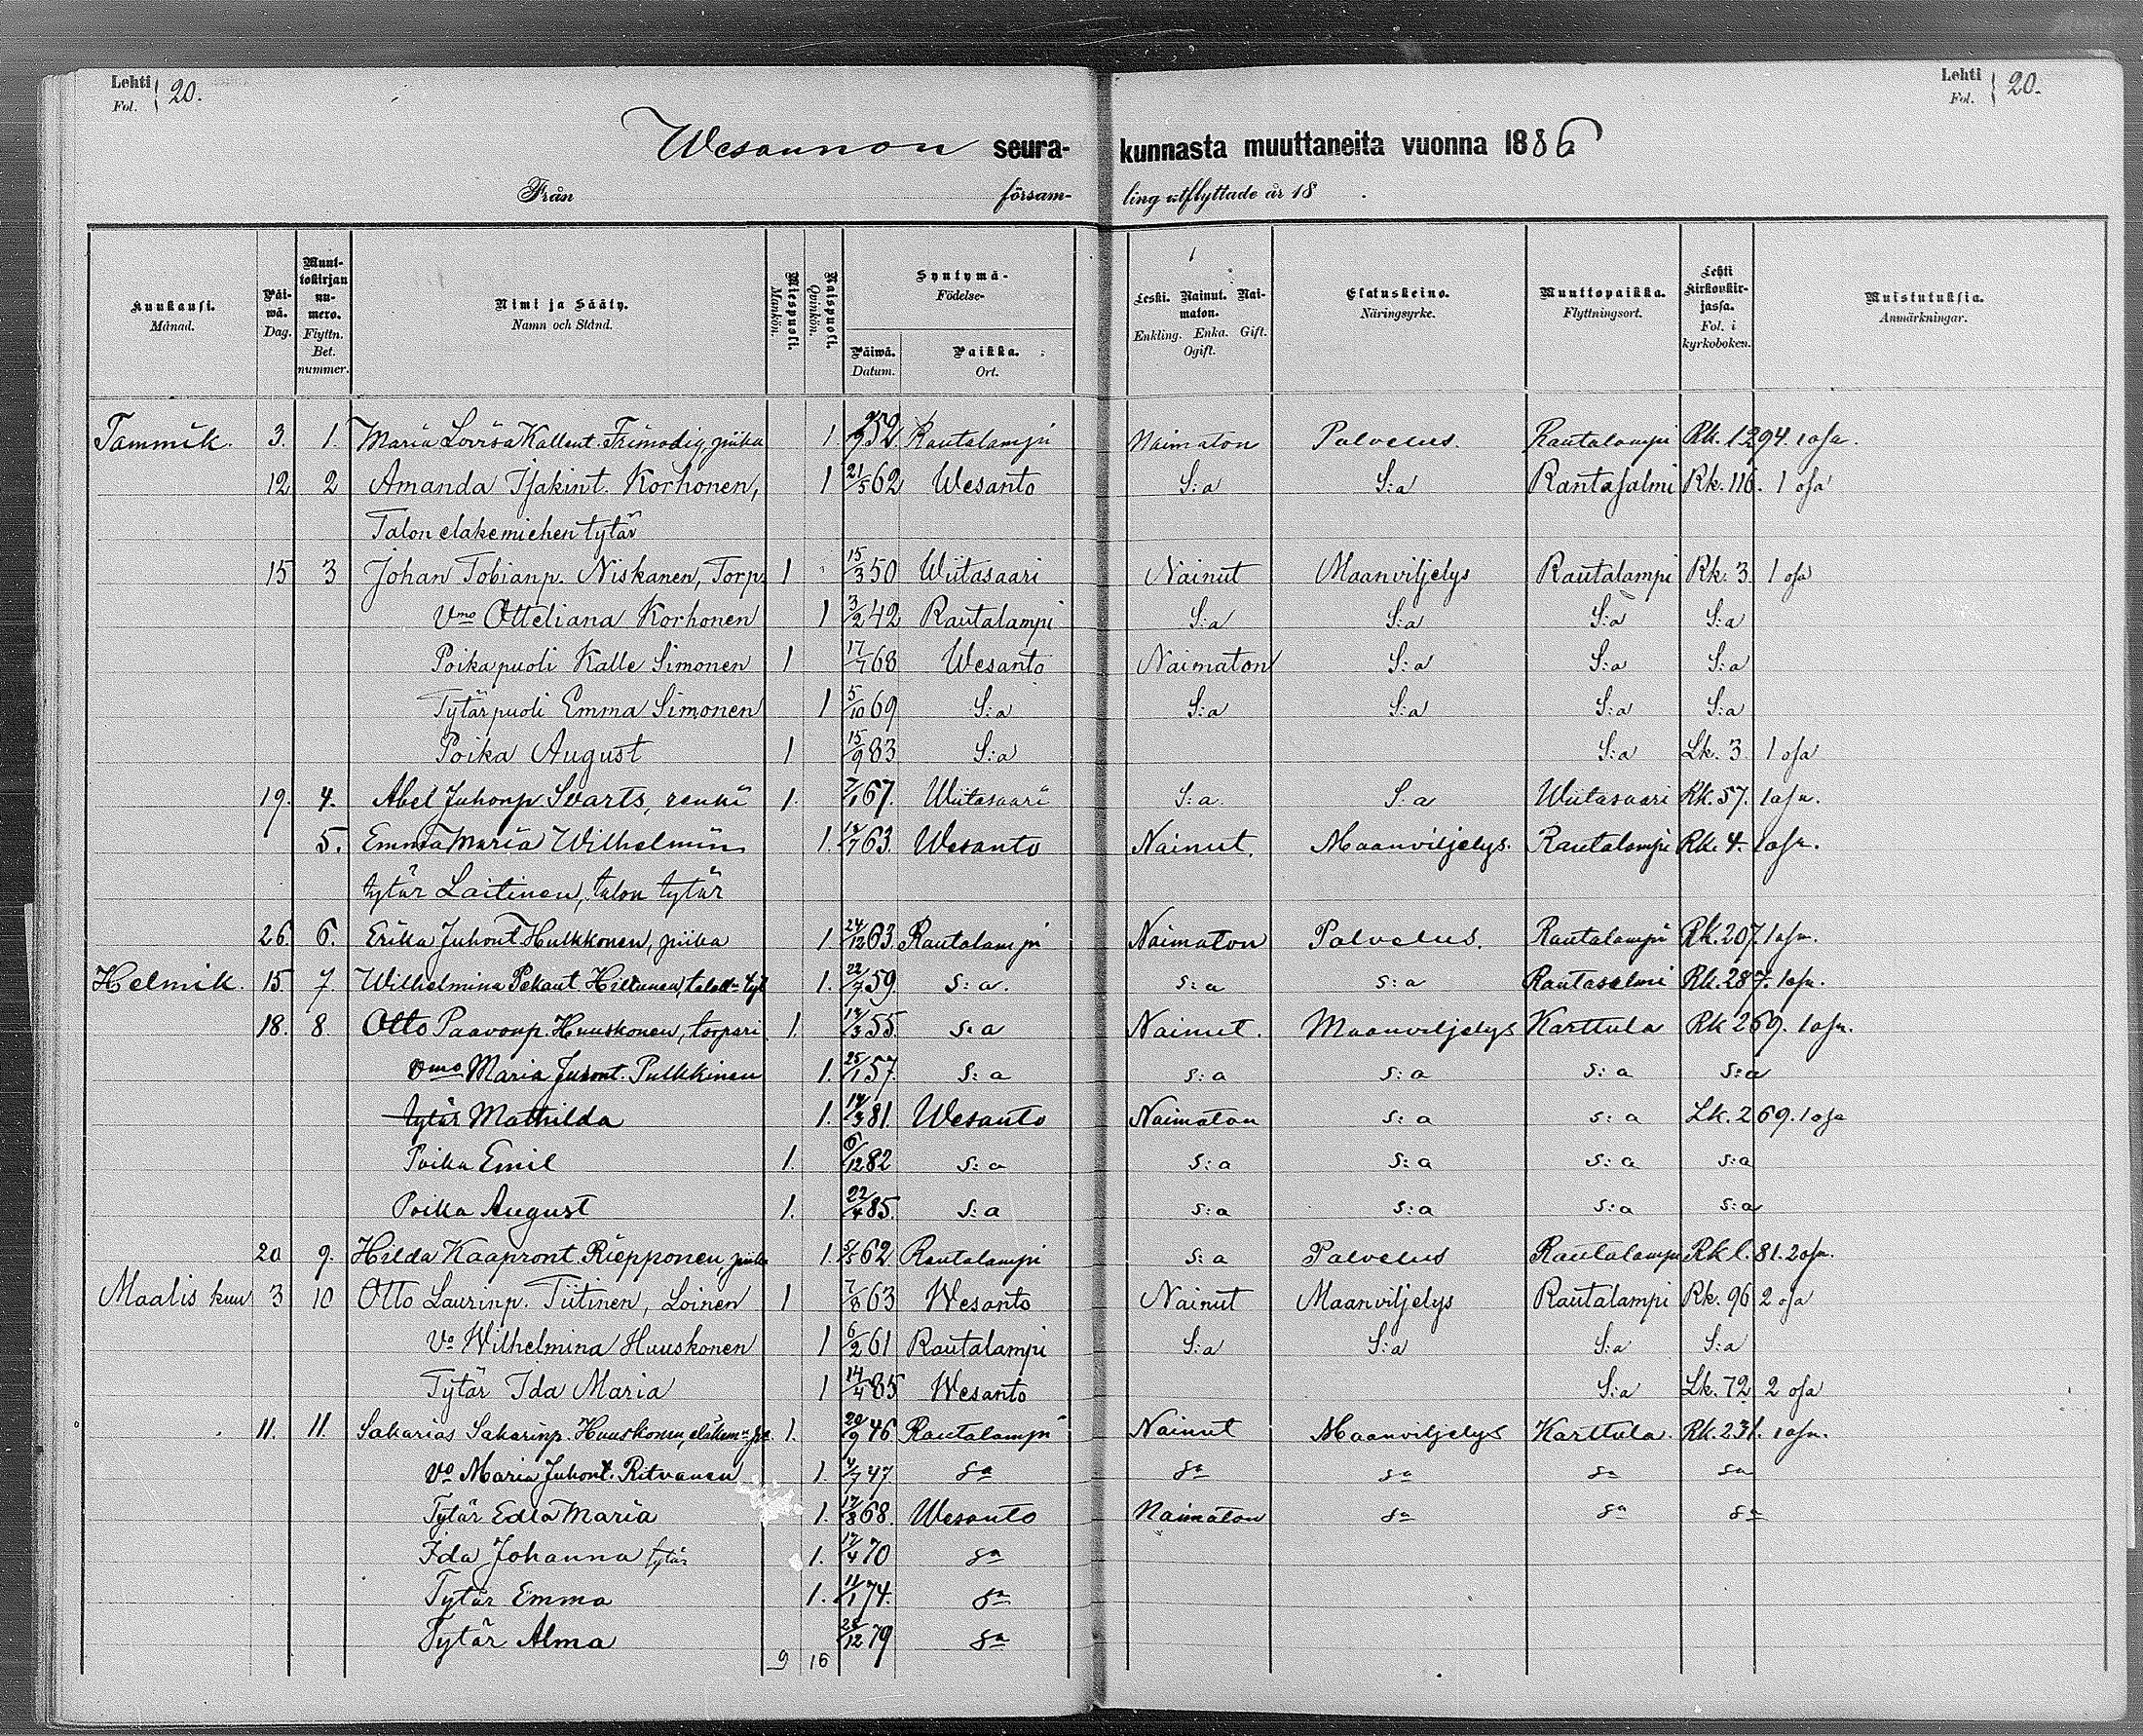 Lehti Fol. 20. Lehti Fol. 20.
Wesannon seura- kunnasta muuttaneita vuonna 1886
Från försam- ling utflyttade år 18 .
Kuukausi. Månad. Päi-wä. Dag. Muut-tokirjan nu-mero. Flyttn. Bet. nummer. Nimi ja Sääty. Namn och Stånd. Miespuoli. Mankön. Naispuoli. Quinkön. Syntymä- Födelse- Päiwä. Datum. Paikka. Ort. Leski. Nainut. Nai-maton. Enkling. Enka. Gift. Ogift. Elatuskeino. Näringsyrke. Muuttopaikka. Flyttningsort. Lehti Kirkonkir-jassa. Fol. i kyrkoboken. Muistutuksia. Anmärkningar.
Tammik. 3. 1. Maria Lovisa Kallent. Frimodig, piika 1. 52. Rautalampi Naimaton Palvelus. Rautalampi Rk. 1294. 1 osa.
12 2 Amanda Isakint. Korhonen, 1 21/5 62 Wesanto S:a S:a Rantasalmi Rk. 116. 1 osa
Talon elakemiehen tytär
15 3 Johan Tobianp. Niskanen, Torp. 1 15/3 50 Wiitasaari Nainut Maanviljelys Rautalampi Rk. 3 1 osa
Vmo Otteliana Korhonen 1 3/2 42 Rautalampi S:a S:a S:a S:a
Poikapuoli Kalle Simonen 1 17/7 68 Wesanto Naimaton S:a S:a S:a
Tytärpuoli Emma Simonen 1 5/10 69 S:a S:a S:a S:a S:a
Poika August 1 15/9 83 S:a S:a Lk. 3 1 osa
19. 4. Abel Juhonp. Svarts, renki 1. 7/1 67. Wiitasaari S:a. S:a Wiitasaari Rk. 57. 1 osa.
5. Emma Maria Wilhelmiin 1. 14/7 63. Wesanto Nainut. Maanviljelys. Rautalampi Rk. 4. 1 osa.
tytär Laitinen, talon tytär
26. 6. Erika Juhont. Hulkkonen, piika 1. 24/12 63. Rautalampi Naimaton Palvelus. Rautalampi Rk. 207. 1 osa.
Helmik. 15. 7. Wilhelmina Pekant. Hiltunen, talon tyt 1. 22/7 59. S:a. S:a S:a Rautasalmi Rk. 287. 1 osa.
18. 8. Otto Paavonp. Huuskonen, torpari 1. 14/3 55. S:a Nainut. Maanviljelys Karttula Rk 269. 1 osa.
vmo Maria Juhont. Pulkkinen 1. 25/1 57. S:a S:a S:a S:a S:a
tytär Mathilda 1. 14/3 81. Wesanto Naimaton S:a S:a Lk. 269. 1 osa
Poika Emil 1. 6/12 82 S:a S:a S:a S:a S:a
Poika August 1. 22/4 85. S:a S:a S:a S:a S:a
20 9. Hilda Kaapront. Riepponen, piika 1. 5/5 62 Rautalampi S:a Palvelus Rautalampi Rk l. 81. 2 osa.
Maalis kuu 3 10 Otto Laurinp. Tiitinen, Loinen 1 7/8 63 Wesanto Nainut Maanviljelys Rautalampi Rk. 96 2 osa
Vo Wilhelmina Huuskonen 1 6/2 61 Rautalampi S:a S:a S:a S:a
Tytär Ida Maria 1 14/4 85 Wesanto S:a Lk. 72 2 osa
11. 11. Sakarias Sakarinp. Huuskonen, 1. 20/9 46 Rautalampi Nainut Maanviljelys Karttula. Rk. 231. 1 osa.
Vo Maria Juhont. Ritvanen 1. 4/7 47 Sa Sa Sa Sa Sa
Tytär Edla Maria 1. 17/8 68. Wesanto Naimaton Sa Sa Sa
Ida Johanna tytär 1. 17/4 70 Sa
Tytär Emma 1. 11/1 74. Sa
Tytär Alma 28/12 79 Sa
9 16